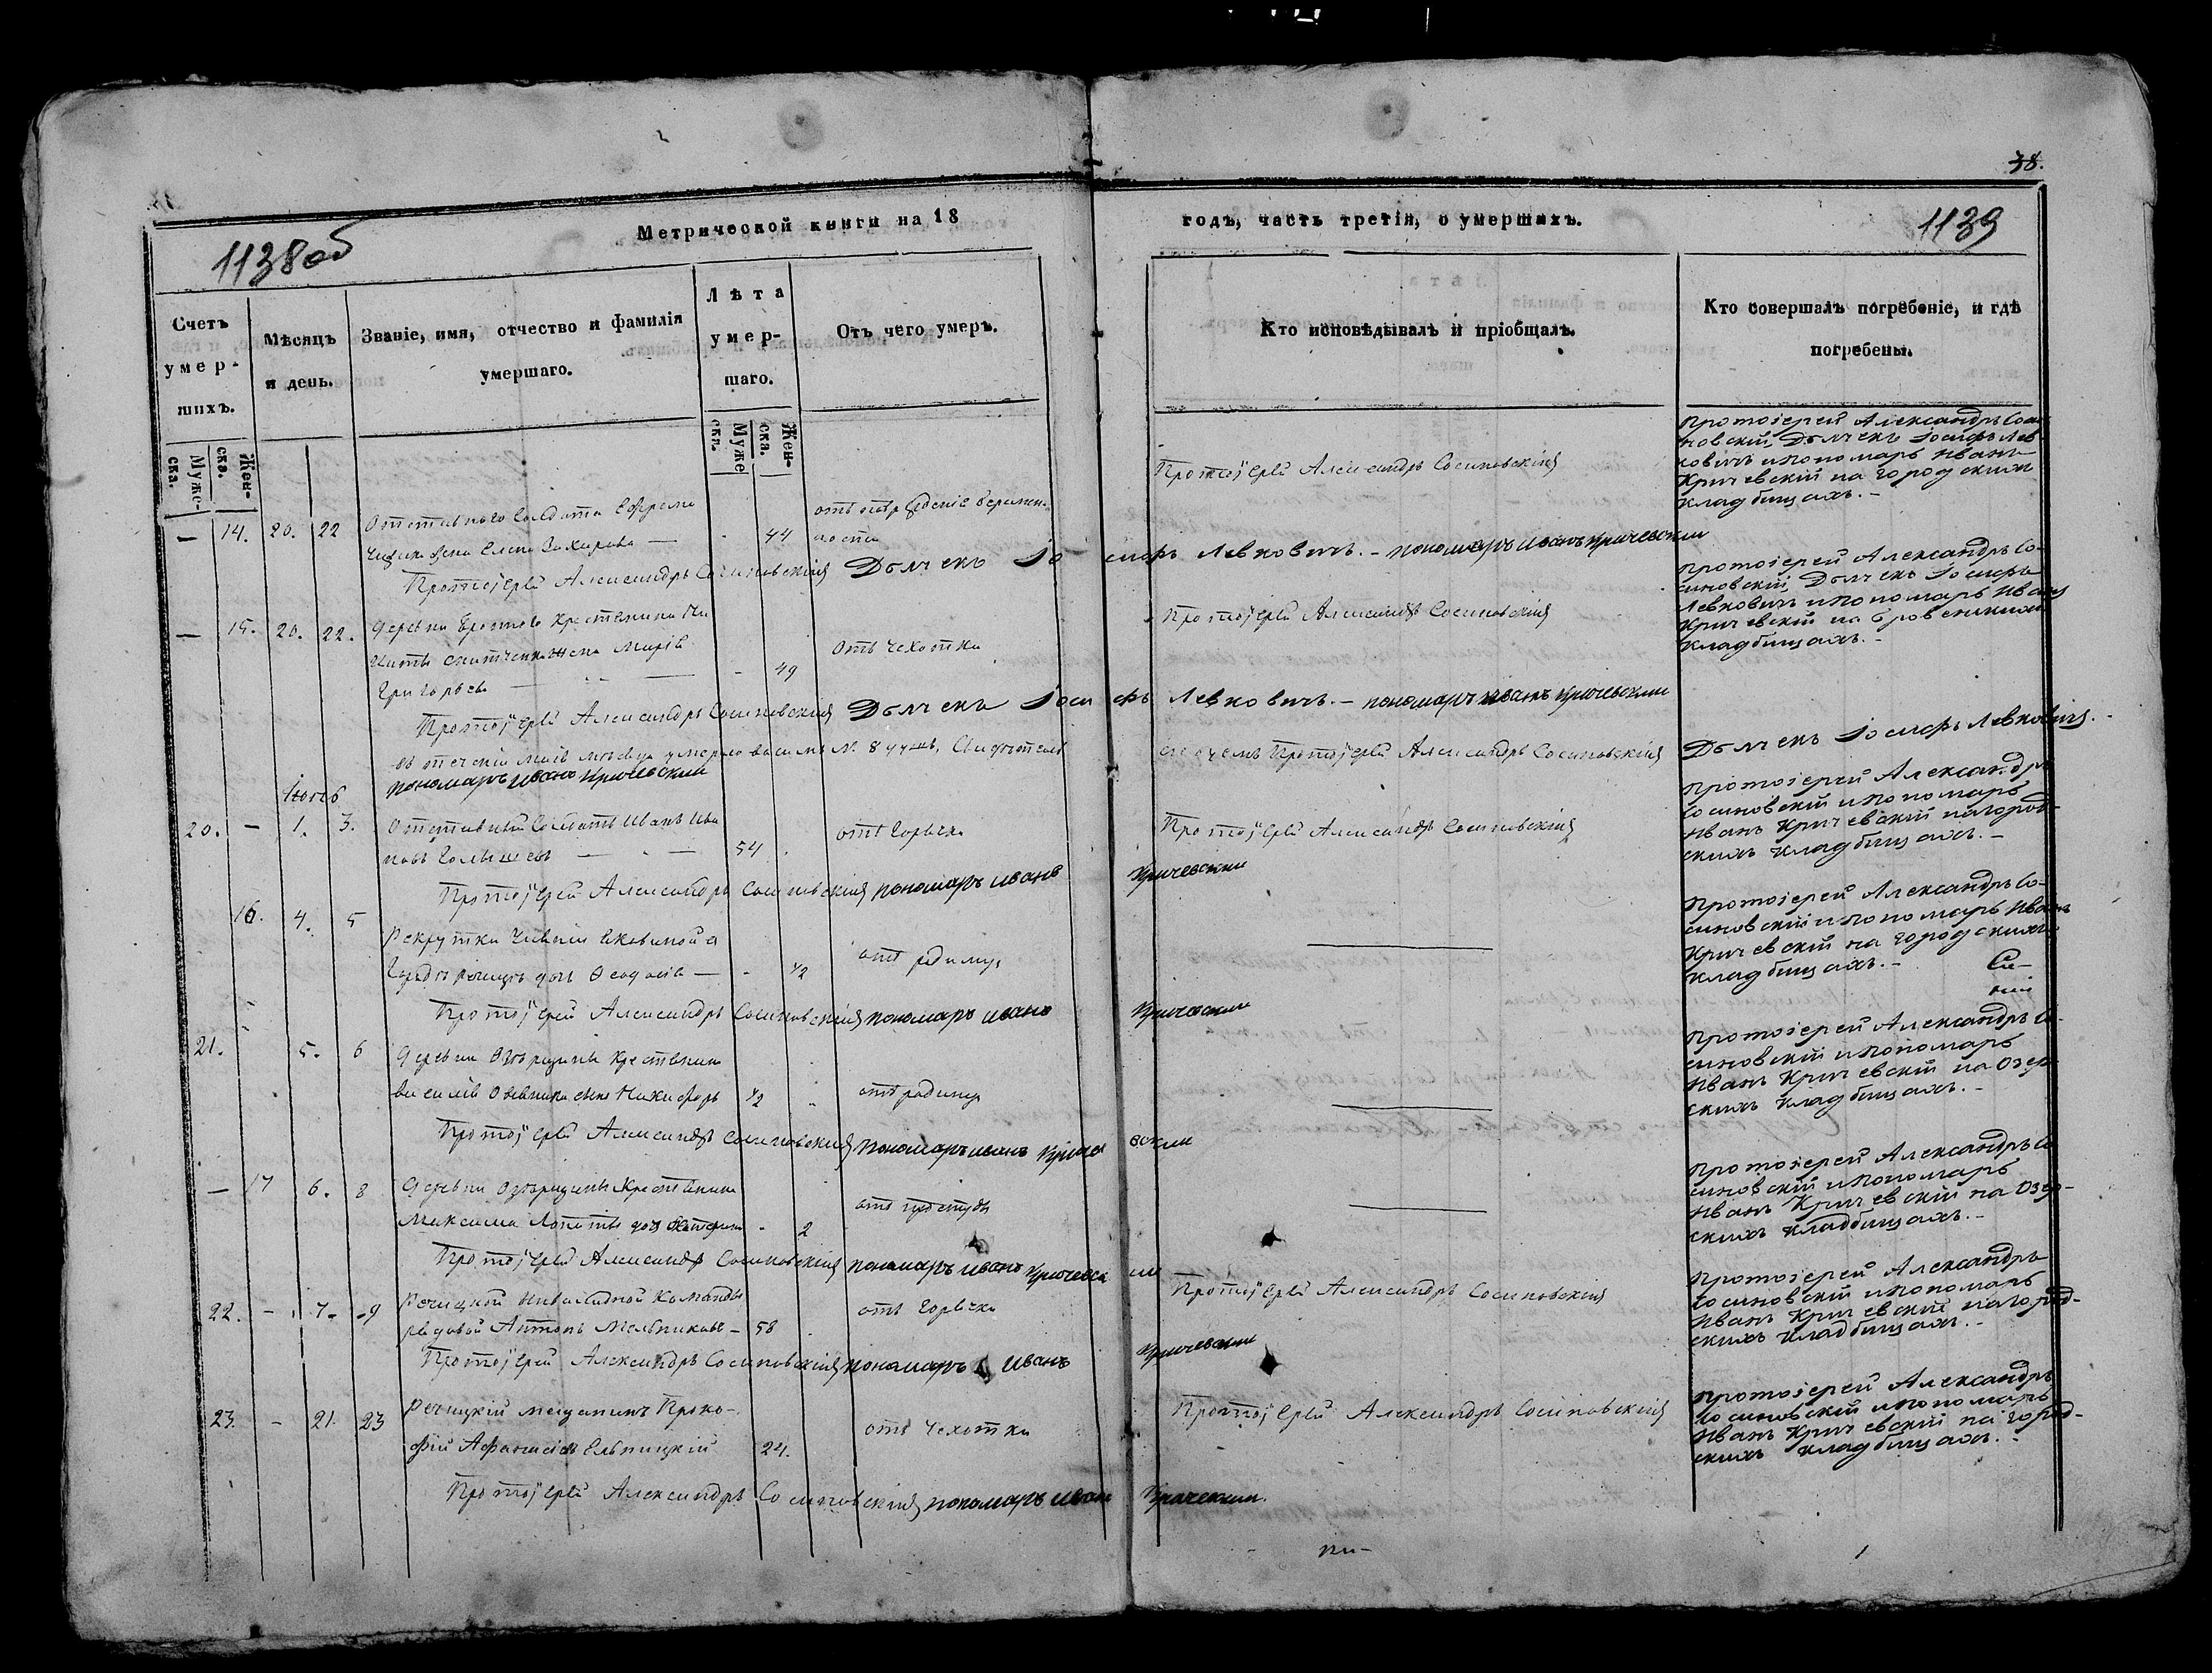 38.
Метрической книги на 18
годъ, часть третія, о умершихъ.
1138 об
1139
Счетъ умершихъ.
Муже-ска.
Жен-ска.
Мѣсяцъ и день.
Званіе, имя, отчество и фамилія умершаго.
Лѣта умершаго.
Муже ска.
Жен-ска.
Отъ чего умеръ.
Кто исповѣдывалъ и пріобщалъ.
Кто совершалъ погребеніе, и гдѣ погребены.
— 14. 20. 22
Отставнаго Солдата Ефрема
жена Елена Захарова —
44
Протоіерей Александръ Сосиновскій
Протоіерей Александръ Соси-
новскій Дьячекъ Іосифъ Лев
ковичъ и пономарь Иванъ
Кричевскій на город скихъ
кладбищахъ. –
Протоіерей Александръ Сосиновскій Дьячекъ Іосифъ Левковичъ. – пономаръ Иванъ Кричевскии
— 15. 20. 22.
деревни крестьянина Ни
киты жена Марія
Григорьева
49
отъ Чехотки
Протоіерей Александръ Сосиновскій
Протоіерей Александръ Со-
синовскій, Дьячекъ Іосифъ
Левковичъ и пономарь Иванъ
Кричевскій на
кладбищахъ. –
Протоіерей Александръ Сосиновскій Дьячекъ Іосифъ Левковичъ. – пономаръ Иванъ Кричевскии
мѣсяцѣ умерло
о чемъ Протоіерей Александръ Сосиновскій
Дьячекъ Іосифъ Левковичъ.
пономаръ Иванъ Кричевскии
20. — 1. 3.
Отставный Солдатъ Иванъ Ива
новъ
54
отъ Горячки
Протоіерей Александръ Сосиновскій
Протоіерей Александръ
Сосиновскій и пономарь
Иванъ Кричевскій на город-
скихъ кладбищахъ. –
Протоіерей Александръ Сосиновскій пономаръ Иванъ Кричевскии
16. 4. 5
Рекрутки
дочь Феодосія —
½
отъ родимц
Протоіерей Александръ Со-
синовскій и пономарь Иванъ
Кричевскій на город скихъ
кладбищахъ. –
Протоіерей Александръ Сосиновскій пономаръ Иванъ Кричевскии
21. 5. 6
деревни Озерщины крестьянина
Василія сынъ Никифоръ
½
отъ родимц
Протоіерей Александръ Со-
синовскій и пономарь
Иванъ Кричевскій на Озер-
скихъ кладбищахъ. –
Протоіерей Александръ Сосиновскій пономаръ Иванъ Кричевскии
— 17 6. 8
деревни Озерщины крестьянина
Максима Лопаты дочь
2
отъ простуды
Протоіерей Александръ Со
синовскій и пономарь
Иванъ Кричевскій на Озер-
скихъ кладбищахъ. –
Протоіерей Александръ Сосиновскій пономаръ Иванъ Кричевскии
22. — 7. 9
Речицкой Инвалидной Команды
рядовой Антонъ Мельниковъ –
58
отъ Горячки
Протоіерей Александръ Сосиновскій
Протоіерей Александръ
Сосиновскій и пономарь
Иванъ Кричевскій на город-
скихъ кладбищахъ. –
Протоіерей Александръ Сосиновскій пономаръ Иванъ Кричевскии
23. — 21. 23
Речицкій мещанинъ Проко-
фій Ельницкій
24.
отъ Чехотки
Протоіерей Александръ Сосиновскій
Протоіерей Александръ
Сосиновскій и пономарь
Иванъ Кричевскій на город-
скихъ кладбищахъ. –
Протоіерей Александръ Сосиновскій пономаръ Иванъ Кричевскии.